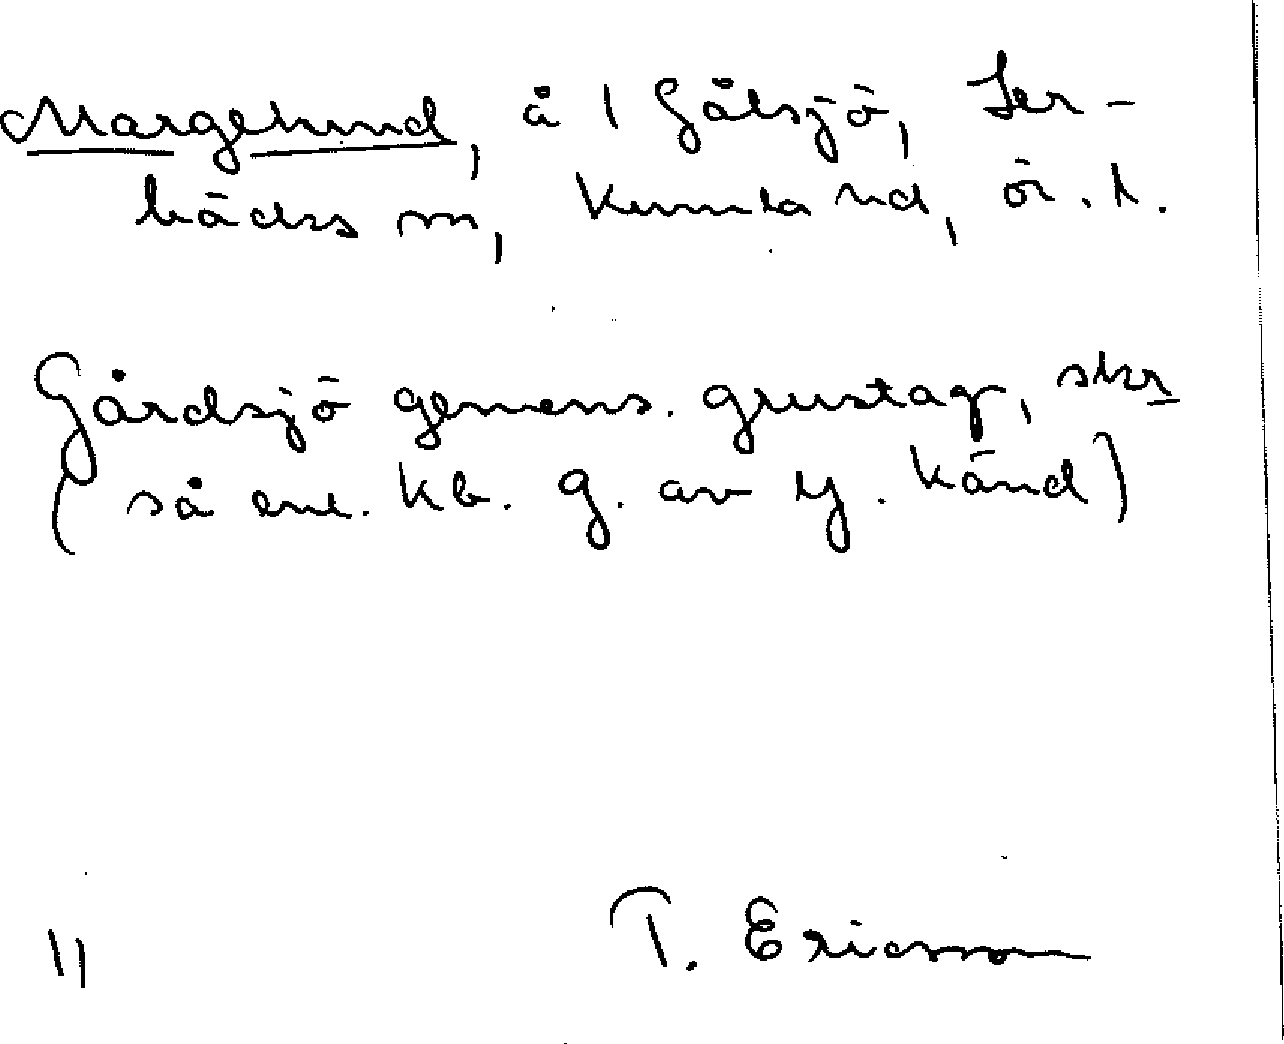 Margelund, å 1 Gålsjö, Ler-
bäcks sn, Kumla hd, ör. l.
Gårdsjö gemens. grustag, skr
(så enl. kb. g. av yj. känd)
11
T. Ericsson